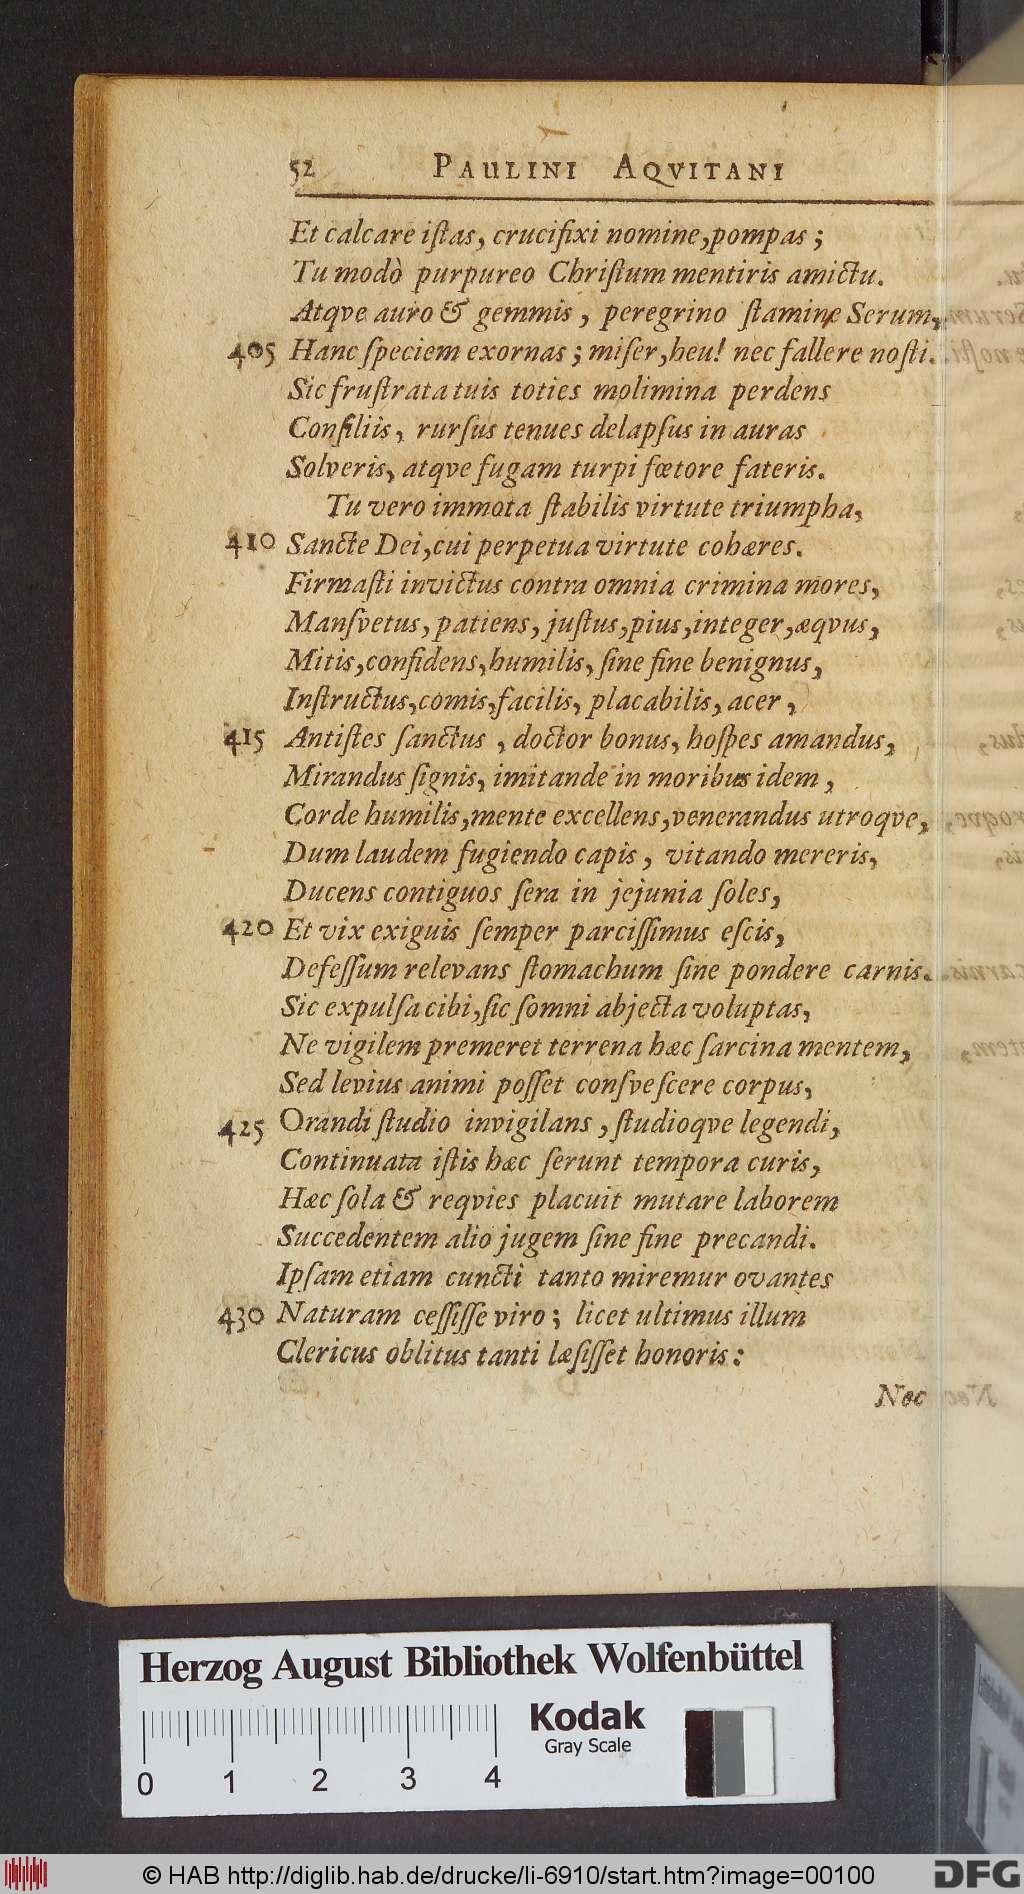 52 PAULINI AQVITANI
Et calcare iſtas, crucifixi nomine, pompas;
Tu modò purpureo Chriſtum mentiris amictu.
Atqve auro & gemmis, peregrino ſtamine Serum,
405 Hanc ſpeciem exornas; miſer, heu! nec fallere noſti.
Sic fruſtrata tuis toties molimina perdens
Conſiliis, rurſus tenues delapſus in auras
Solveris, atqve fugam turpi fœtore fateris.
Tu vero immota ſtabilis virtute triumpha,
410 Sancte Dei, cui perpetua virtute cohæres.
Firmaſti invictus contra omnia crimina mores,
Manſvetus, patiens, juſtus, pius, integer, æqvus,
Mitis, confidens, humilis, ſine fine benignus,
Inſtructus, comis, facilis, placabilis, acer,
415 Antiſtes ſanctus, doctor bonus, hoſpes amandus,
Mirandus ſignis, imitande in moribus idem,
Corde humilis, mente excellens, venerandus utroqve,
Dum laudem fugiendo capis, vitando mereris,
Ducens contiguos ſera in jejunia ſoles,
420 Et vix exiguis ſemper parciſſimus eſcis,
Defeſſum relevans ſtomachum ſine pondere carnis.
Sic expulſa cibi, ſic ſomni abjecta voluptas,
Ne vigilem premeret terrena hæc ſarcina mentem,
Sed levius animi poſſet conſveſcere corpus,
425 Orandi ſtudio invigilans, ſtudioqve legendi,
Continuata iſtis hæc ſerunt tempora curis,
Hæc ſola & reqvies placuit mutare laborem
Succedentem alio jugem ſine fine precandi.
Ipſam etiam cuncti tanto miremur ovantes
430 Naturam ceſſiſſe viro; licet ultimus illum
Clericus oblitus tanti læſiſſet honoris:
Nec
Herzog August Bibliothek Wolfenbüttel
Kodak
Gray Scale
0 1 2 3 4
© HAB http://diglib.hab.de/drucke/li-6910/start.htm?image=00100
DFG